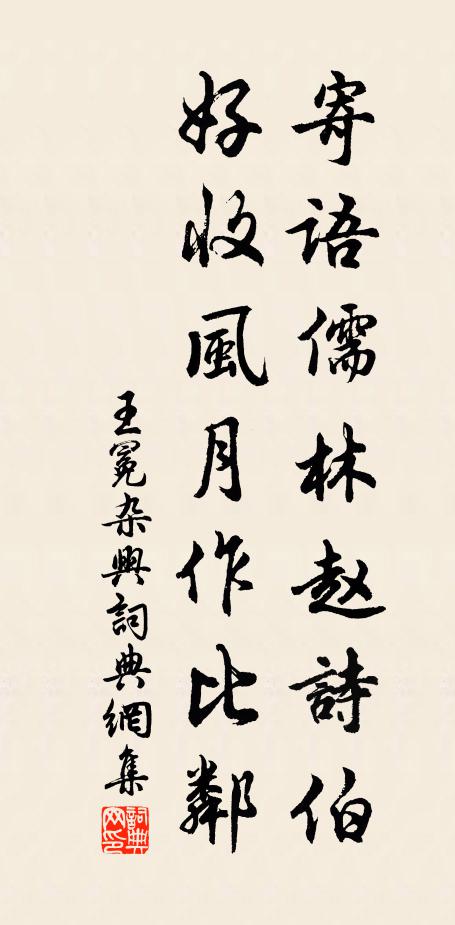 寄語儒林赵詩伯
好收風月作比鄰
王冕杂興詞典網集
詞典網印